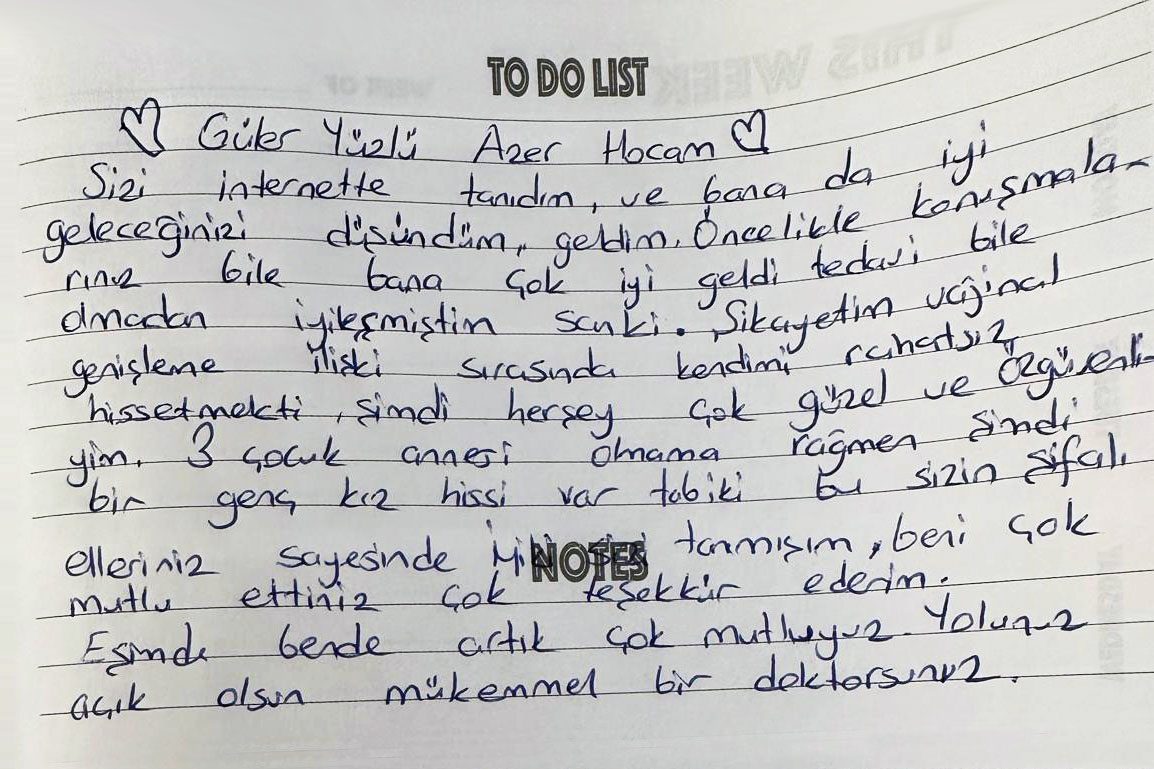 TO DO LIST
♡ Güler Yüzlü Azer Hocam ♡
Sizi internette tanıdım, ve bana da iyi
geleceğinizi düşündüm, geldim. Öncelikle konuşmala-
rınız bile bana çok iyi geldi tedavi bile
olmadan iyileşmiştim sanki. Şikayetim vajinal
genişleme ilişki sırasında kendimi rahatsız
hissetmekti, şimdi herşey çok güzel ve özgüvenli-
yim. 3 çocuk annesi olmama rağmen şimdi
bir genç kız hissi var tabiki bu sizin şifalı
elleriniz sayesinde İyiki tanımışım, beni çok
NOTES
mutlu ettiniz çok teşekkür ederim.
Eşimde bende artık çok mutluyuz. Yolunuz
açık olsun mükemmel bir doktorsunuz.